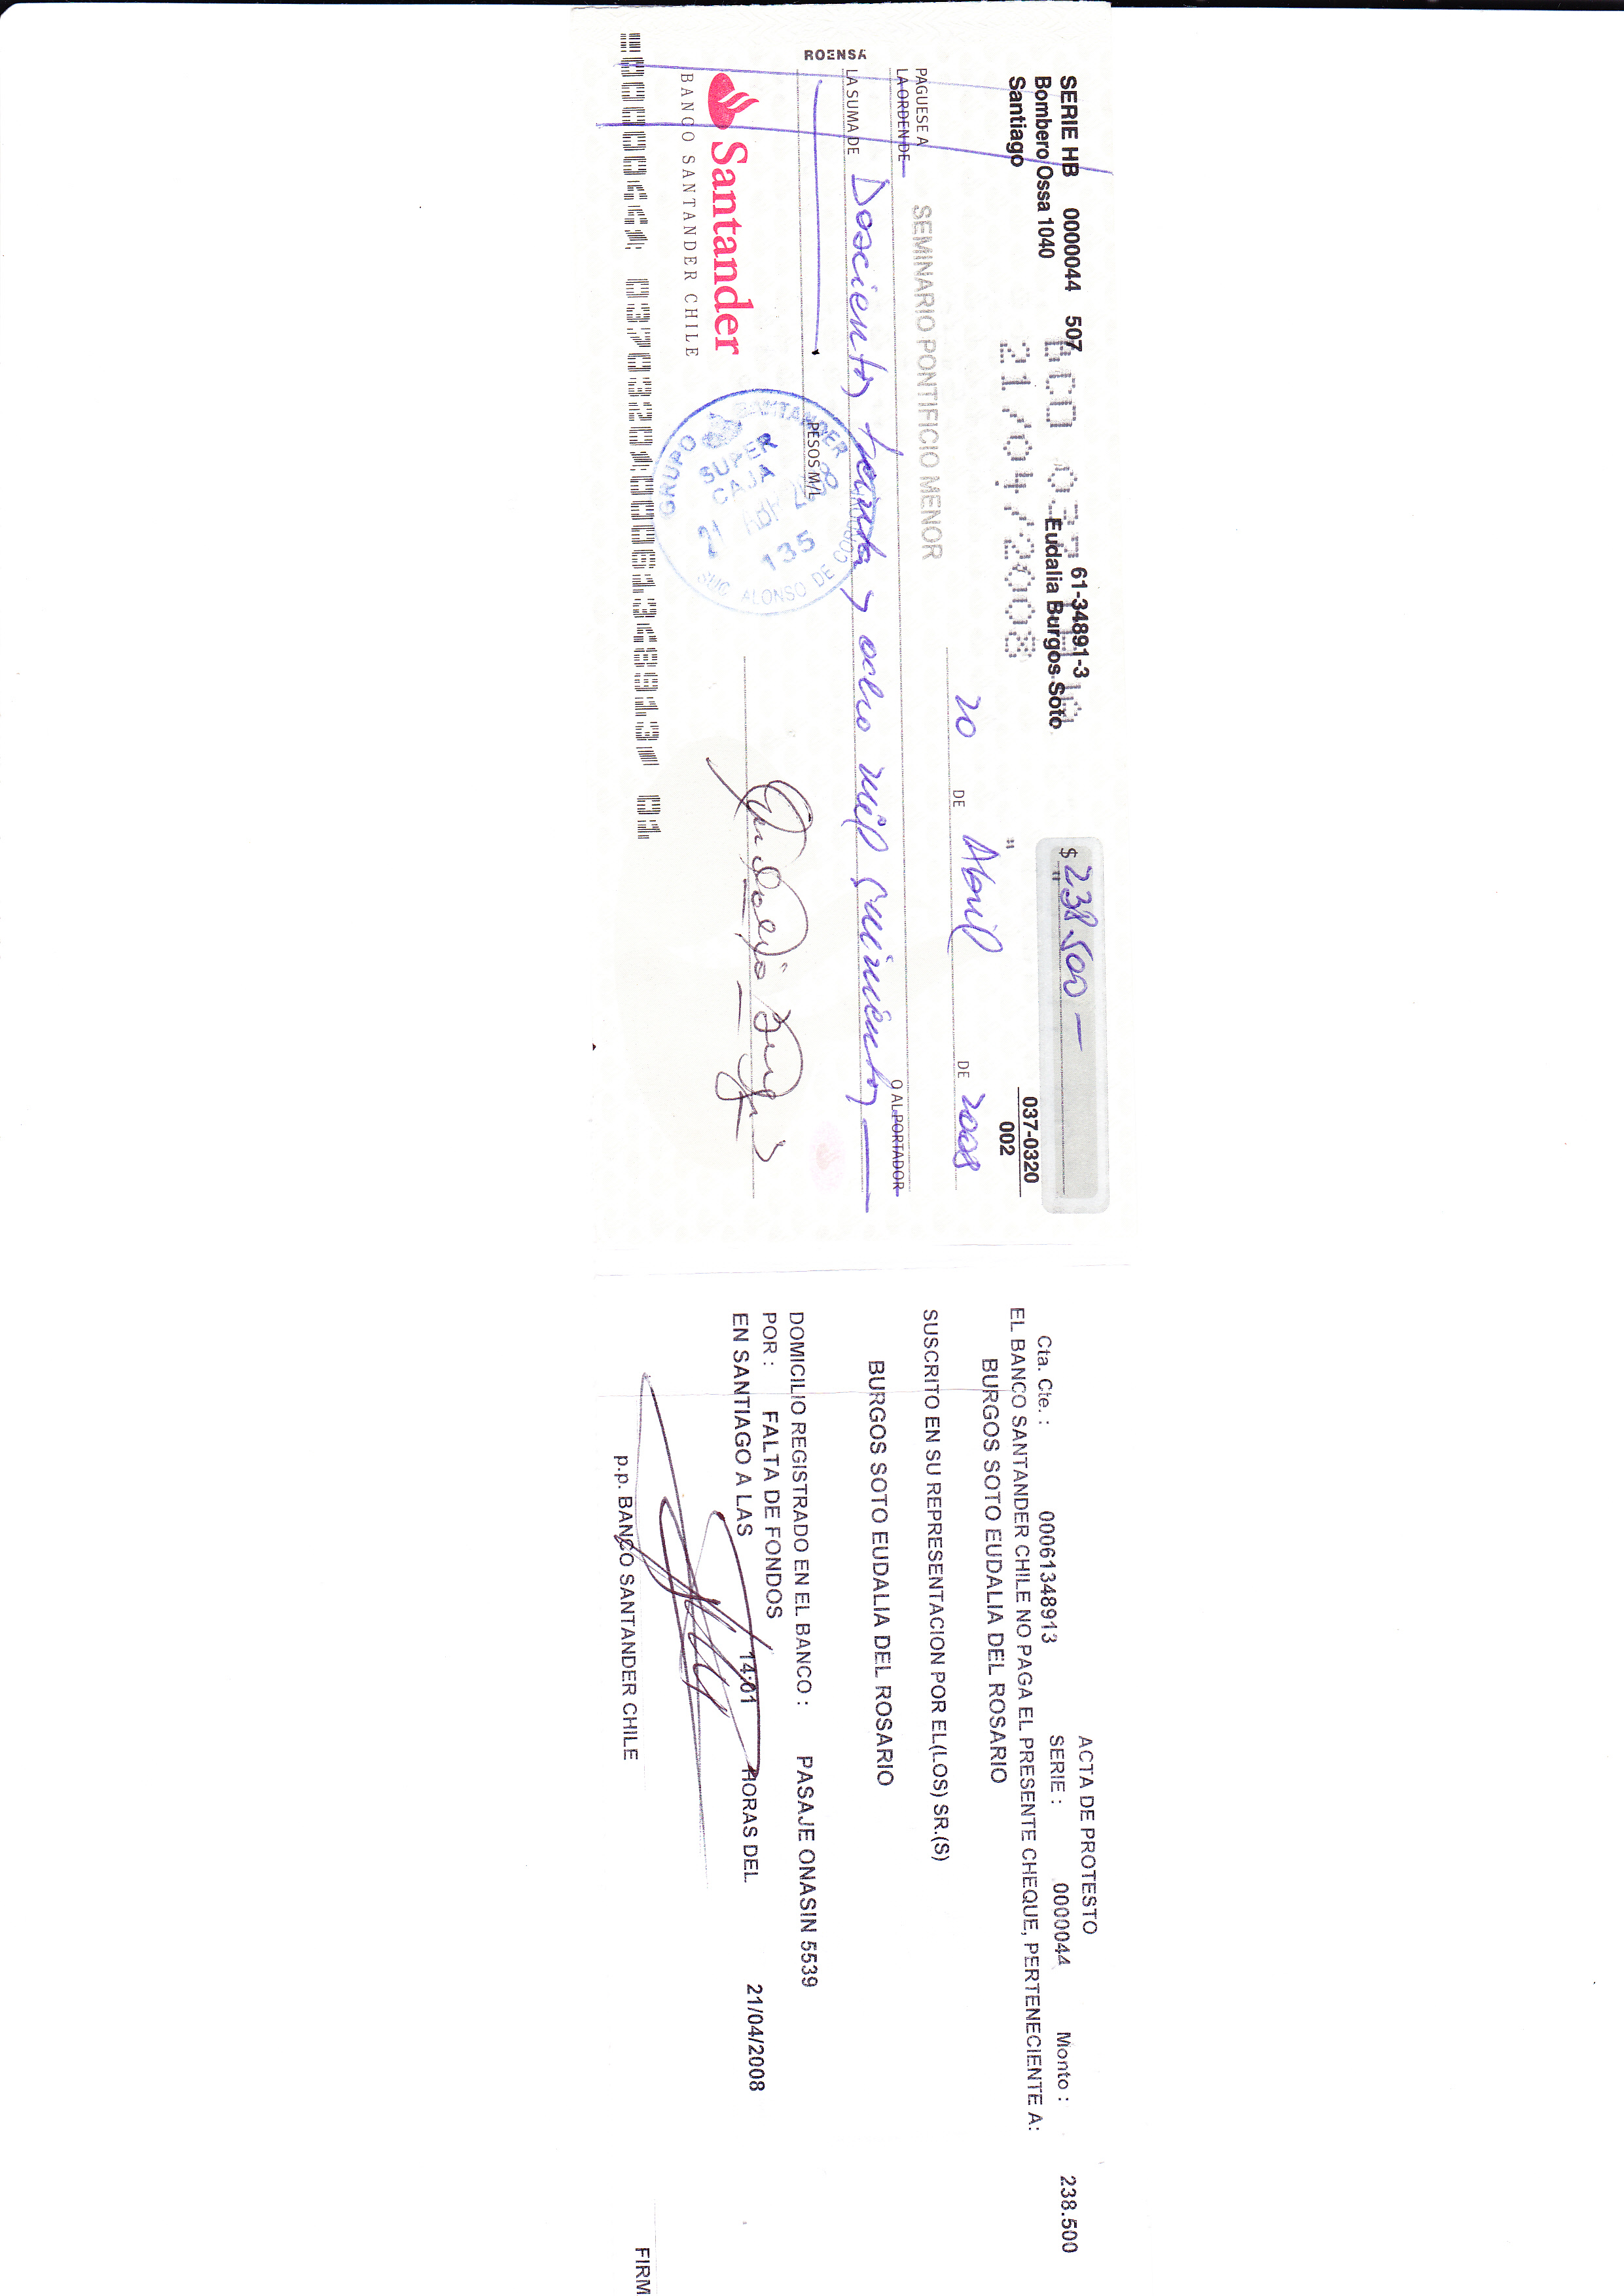 SERIE HB 0000044 507
61-34891-3
$ 238.500 —
Bombero Ossa 1040
Eudalia Burgos Soto
Santiago
21/04/2008
037-0320
002
20 DE Abril DE 2008
PAGUESE A
LA ORDEN DE
SEMINARIO PONTIFICIO MENOR
O AL PORTADOR
LA SUMA DE Doscientos treinta y ocho mil quinientos
PESOS M/L
ROENSA
Santander
BANCO SANTANDER CHILE
GRUPO SANTANDER
SUPER
CAJA
135
ALONSO DE
ACTA DE PROTESTO
Cta. Cte. : 00061348913 SERIE : 0000044 Monto : 238.500
EL BANCO SANTANDER CHILE NO PAGA EL PRESENTE CHEQUE, PERTENECIENTE A:
BURGOS SOTO EUDALIA DEL ROSARIO
SUSCRITO EN SU REPRESENTACION POR EL(LOS) SR.(S)
BURGOS SOTO EUDALIA DEL ROSARIO
DOMICILIO REGISTRADO EN EL BANCO : PASAJE ONASIN 5539
POR : FALTA DE FONDOS
EN SANTIAGO A LAS 14:01 HORAS DEL 21/04/2008
p.p. BANCO SANTANDER CHILE
FIRM